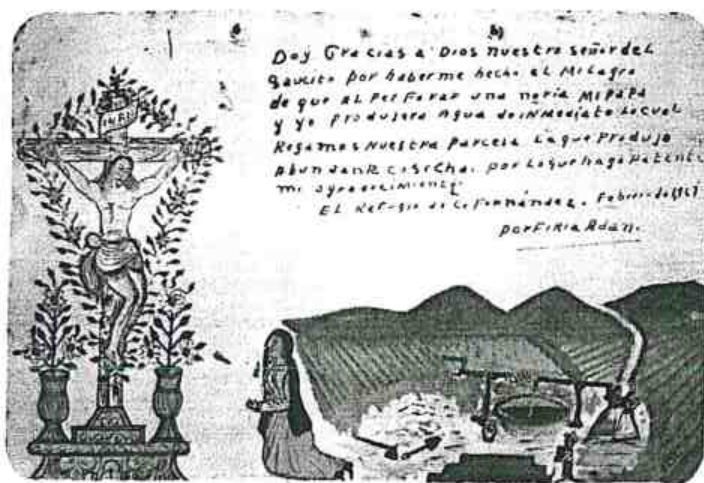 INRI
Doy Gracias a Dios nuestro señor del
Saucito por haberme hecho el Milagro
de que al Perforar una noria Mi PaPa
y yo Produjera Agua de inMediato Lo cual
Regamos Nuestra Parcela La que Produjo
Abundante cosecha. por Lo que hago Patente
mi agradecimiento
El Refugio de Fernández. Febrero de
porFiria Adan.